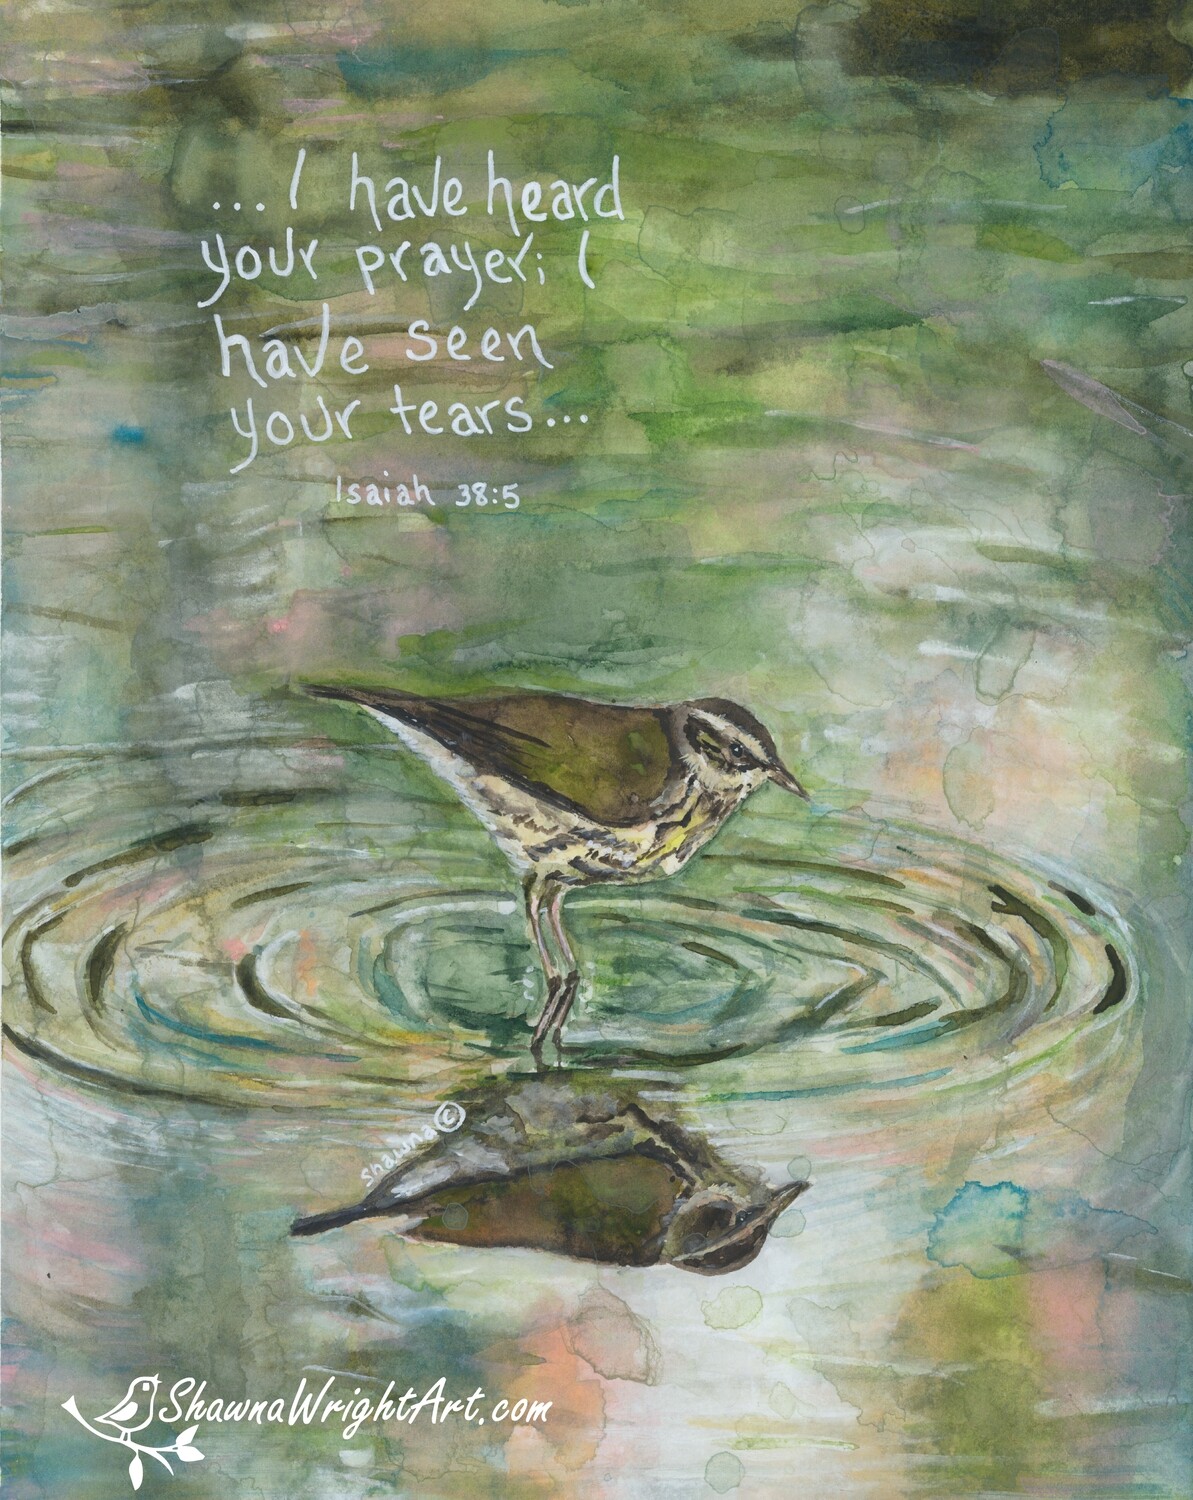 ...I have heard
your prayer; I
have seen
your tears...
Isaiah 38:5
shawna ©
ShawnaWrightArt.com